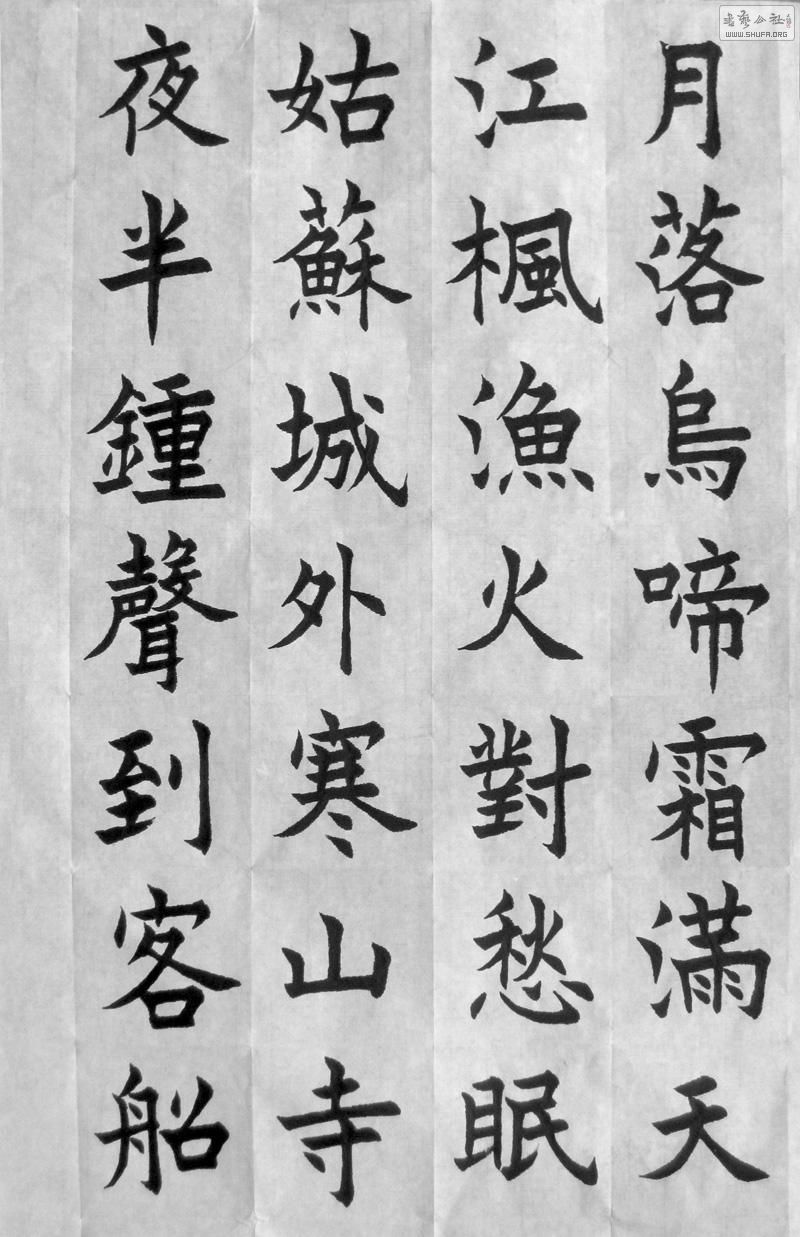 月落烏啼霜滿天
江楓漁火對愁眠
姑蘇城外寒山寺
夜半鍾聲到客船
WWW.SHUFA.ORG